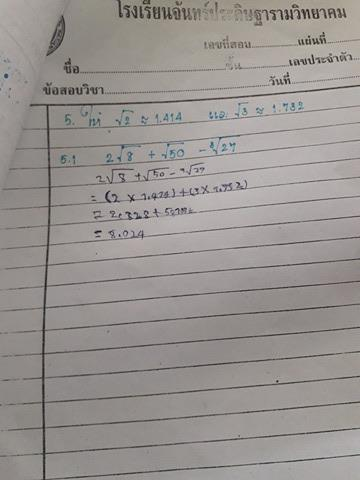 โรงเรียนจันทร์ประดิษฐารามวิทยาคม
เลขที่สอบ..........แผ่นที่
ชื่อ..........ชั้น..........เลขประจำตัว
ข้อสอบวิชา..........วันที่
5. ให้ √2 ≈ 1.414 และ √3 ≈ 1.732
5.1 2√8 + √50 - ³√27
2√8 + √50 - ³√27
= 8.024